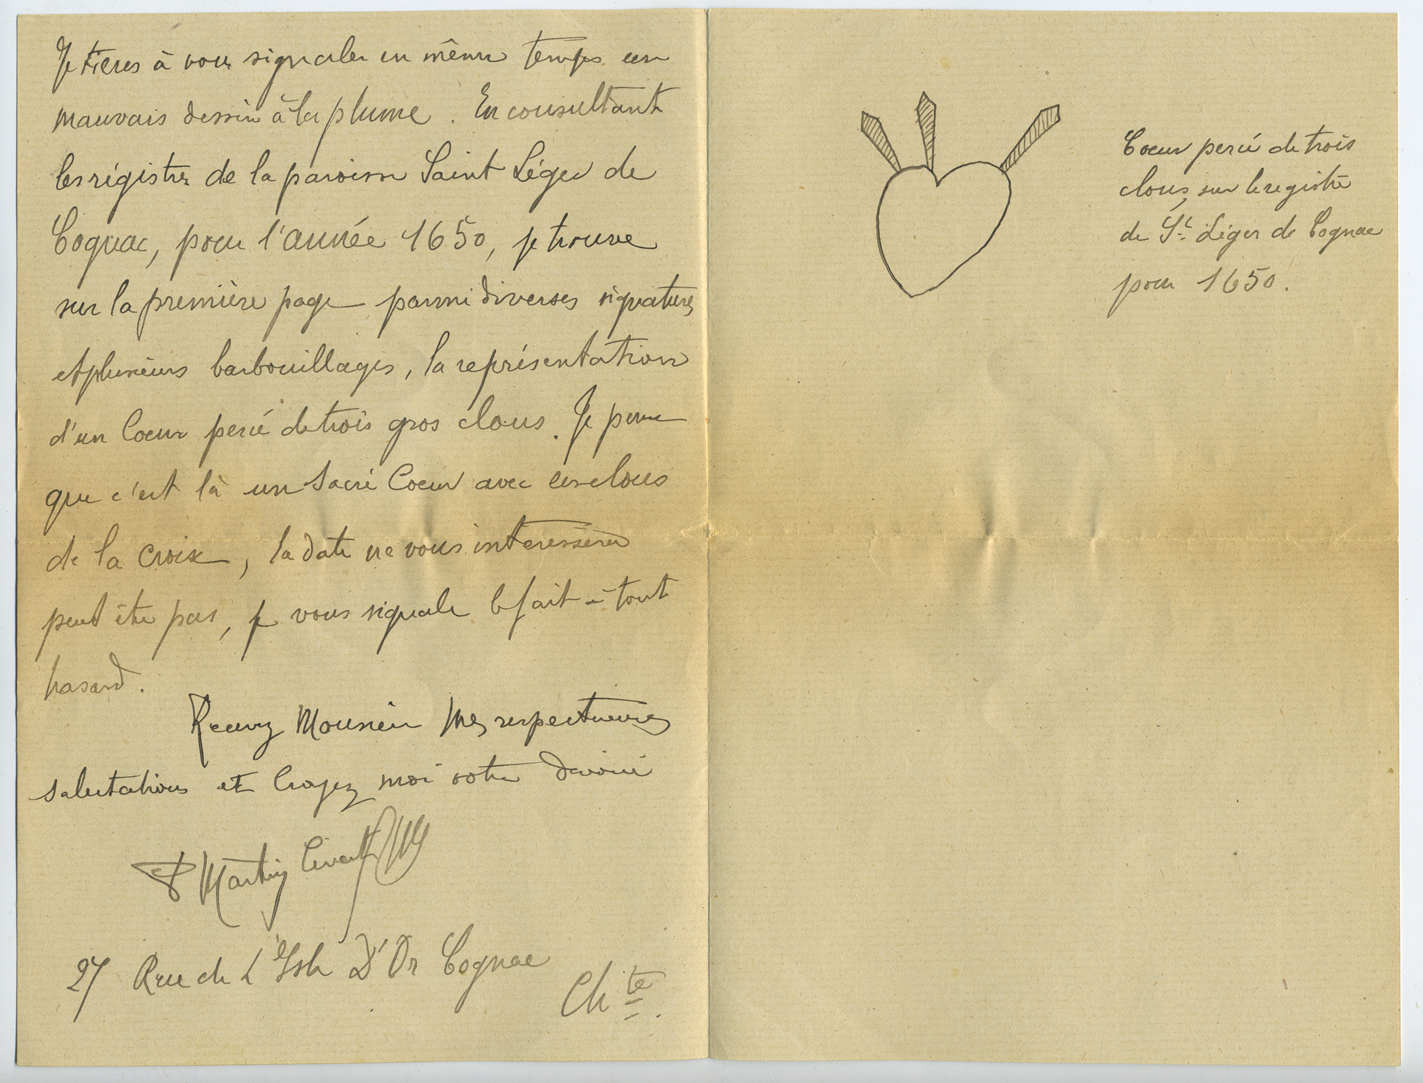 Je tiens à vous signaler en même temps un
mauvais dessin à la plume. En consultant
les régistres de la paroisse Saint Léger de
Cognac, pour l'année 1650, je trouve
sur la première page parmi diverses signatures
et plusieurs barbouillages, la représentation
d'un Coeur percé de trois gros clous. Je pense
que c'est là un Sacré Coeur avec les clous
de la croix, la date ne vous intéressera
peut être pas, je vous signale le fait à tout
hasard.
Recevez Monsieur mes respectueuses
salutations et Croyez moi votre dévoué
Martin Civat
27 Rue de L'Isle D'Or Cognac
Ch te.
Coeur percé de trois
clous, sur le registre
de St Léger de Cognac
pour 1650.